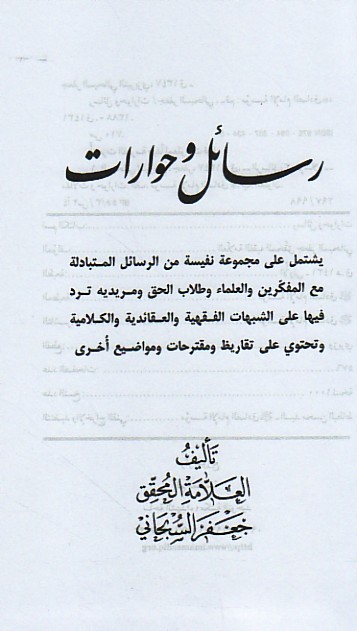 رسائل وحوارات
يشتمل على مجموعة نفيسة من الرسائل المتبادلة
مع المفكّرين والعلماء وطلاب الحق ومريديه ترد
فيها على الشبهات الفقهية والعقائدية والكلامية
وتحتوي على تقاريظ ومقترحات ومواضيع أُخرى
تأليفُ
العلّامة المُحقّق
جَعفَر السُّبحاني